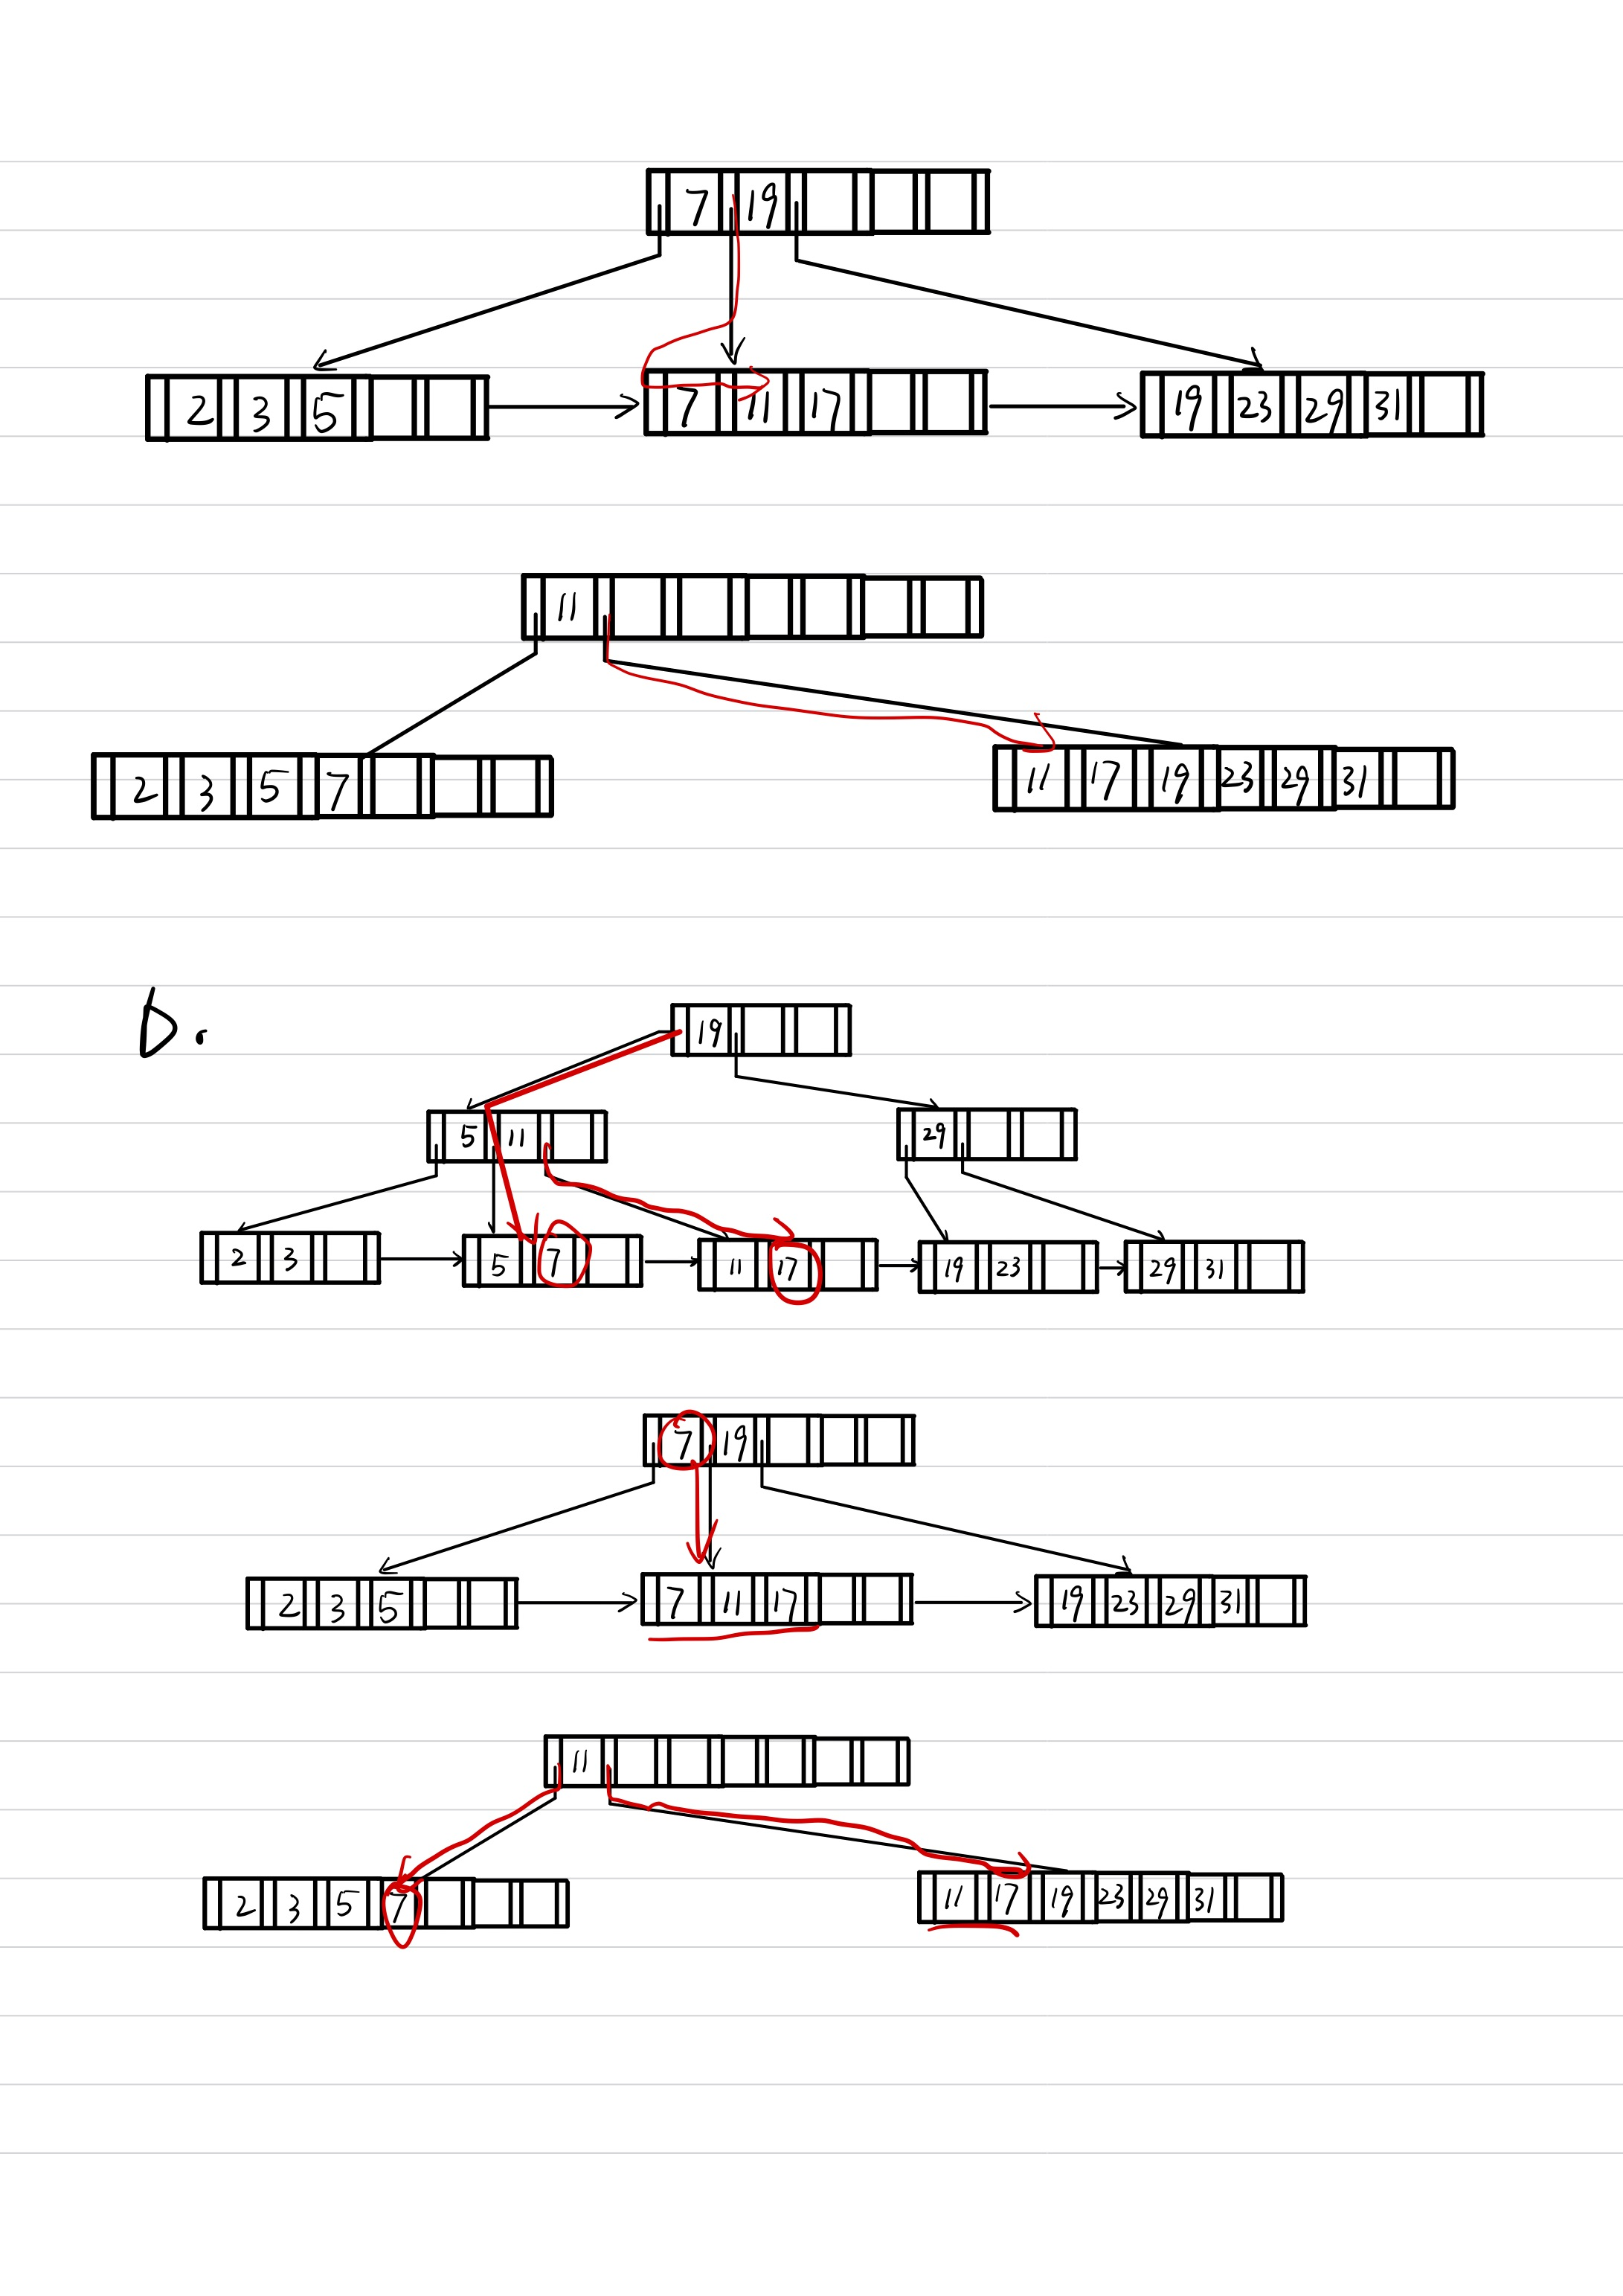 7 19
2 3 5 7 11 17 19 23 29 31
11
2 3 5 7 11 17 19 23 29 31
b.
19
5 11 29
2 3 5 7 11 17 19 23 29 31
7 19
2 3 5 7 11 17 19 23 29 31
11
2 3 5 7 11 17 19 23 29 31